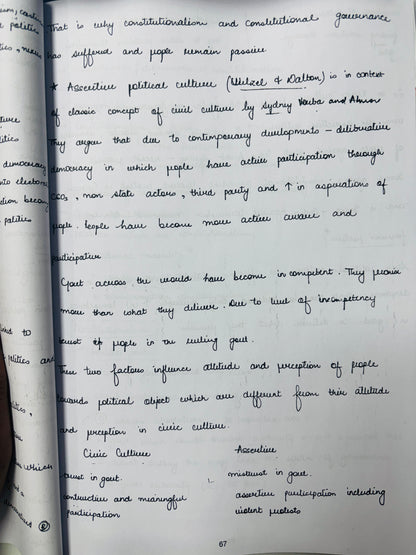 That is why constitutionalism and constitutional governance
has suffered and people remain passive
* Assertive political culture (Welzel & Dalton) is in context
of classic concept of civil culture by Sydney Verba and Almon
They argue that due to contemporary developments – deliberative
democracy in which people have active participation through
CSOs, non state actors, third party and ↑ in aspirations of
people. People have become more active aware and
participative
Govt across the world have become incompetent. They promise
more than what they deliver. Due to level of incompetency
trust of people in the ruling govt.
These two factors influence attitude and perception of people
towards political object which are different from their attitude
and perception in civic culture.
Civic Culture Assertive
trust in govt. mistrust in govt.
constructive and meaningful assertive participation including
participation violent protests
67